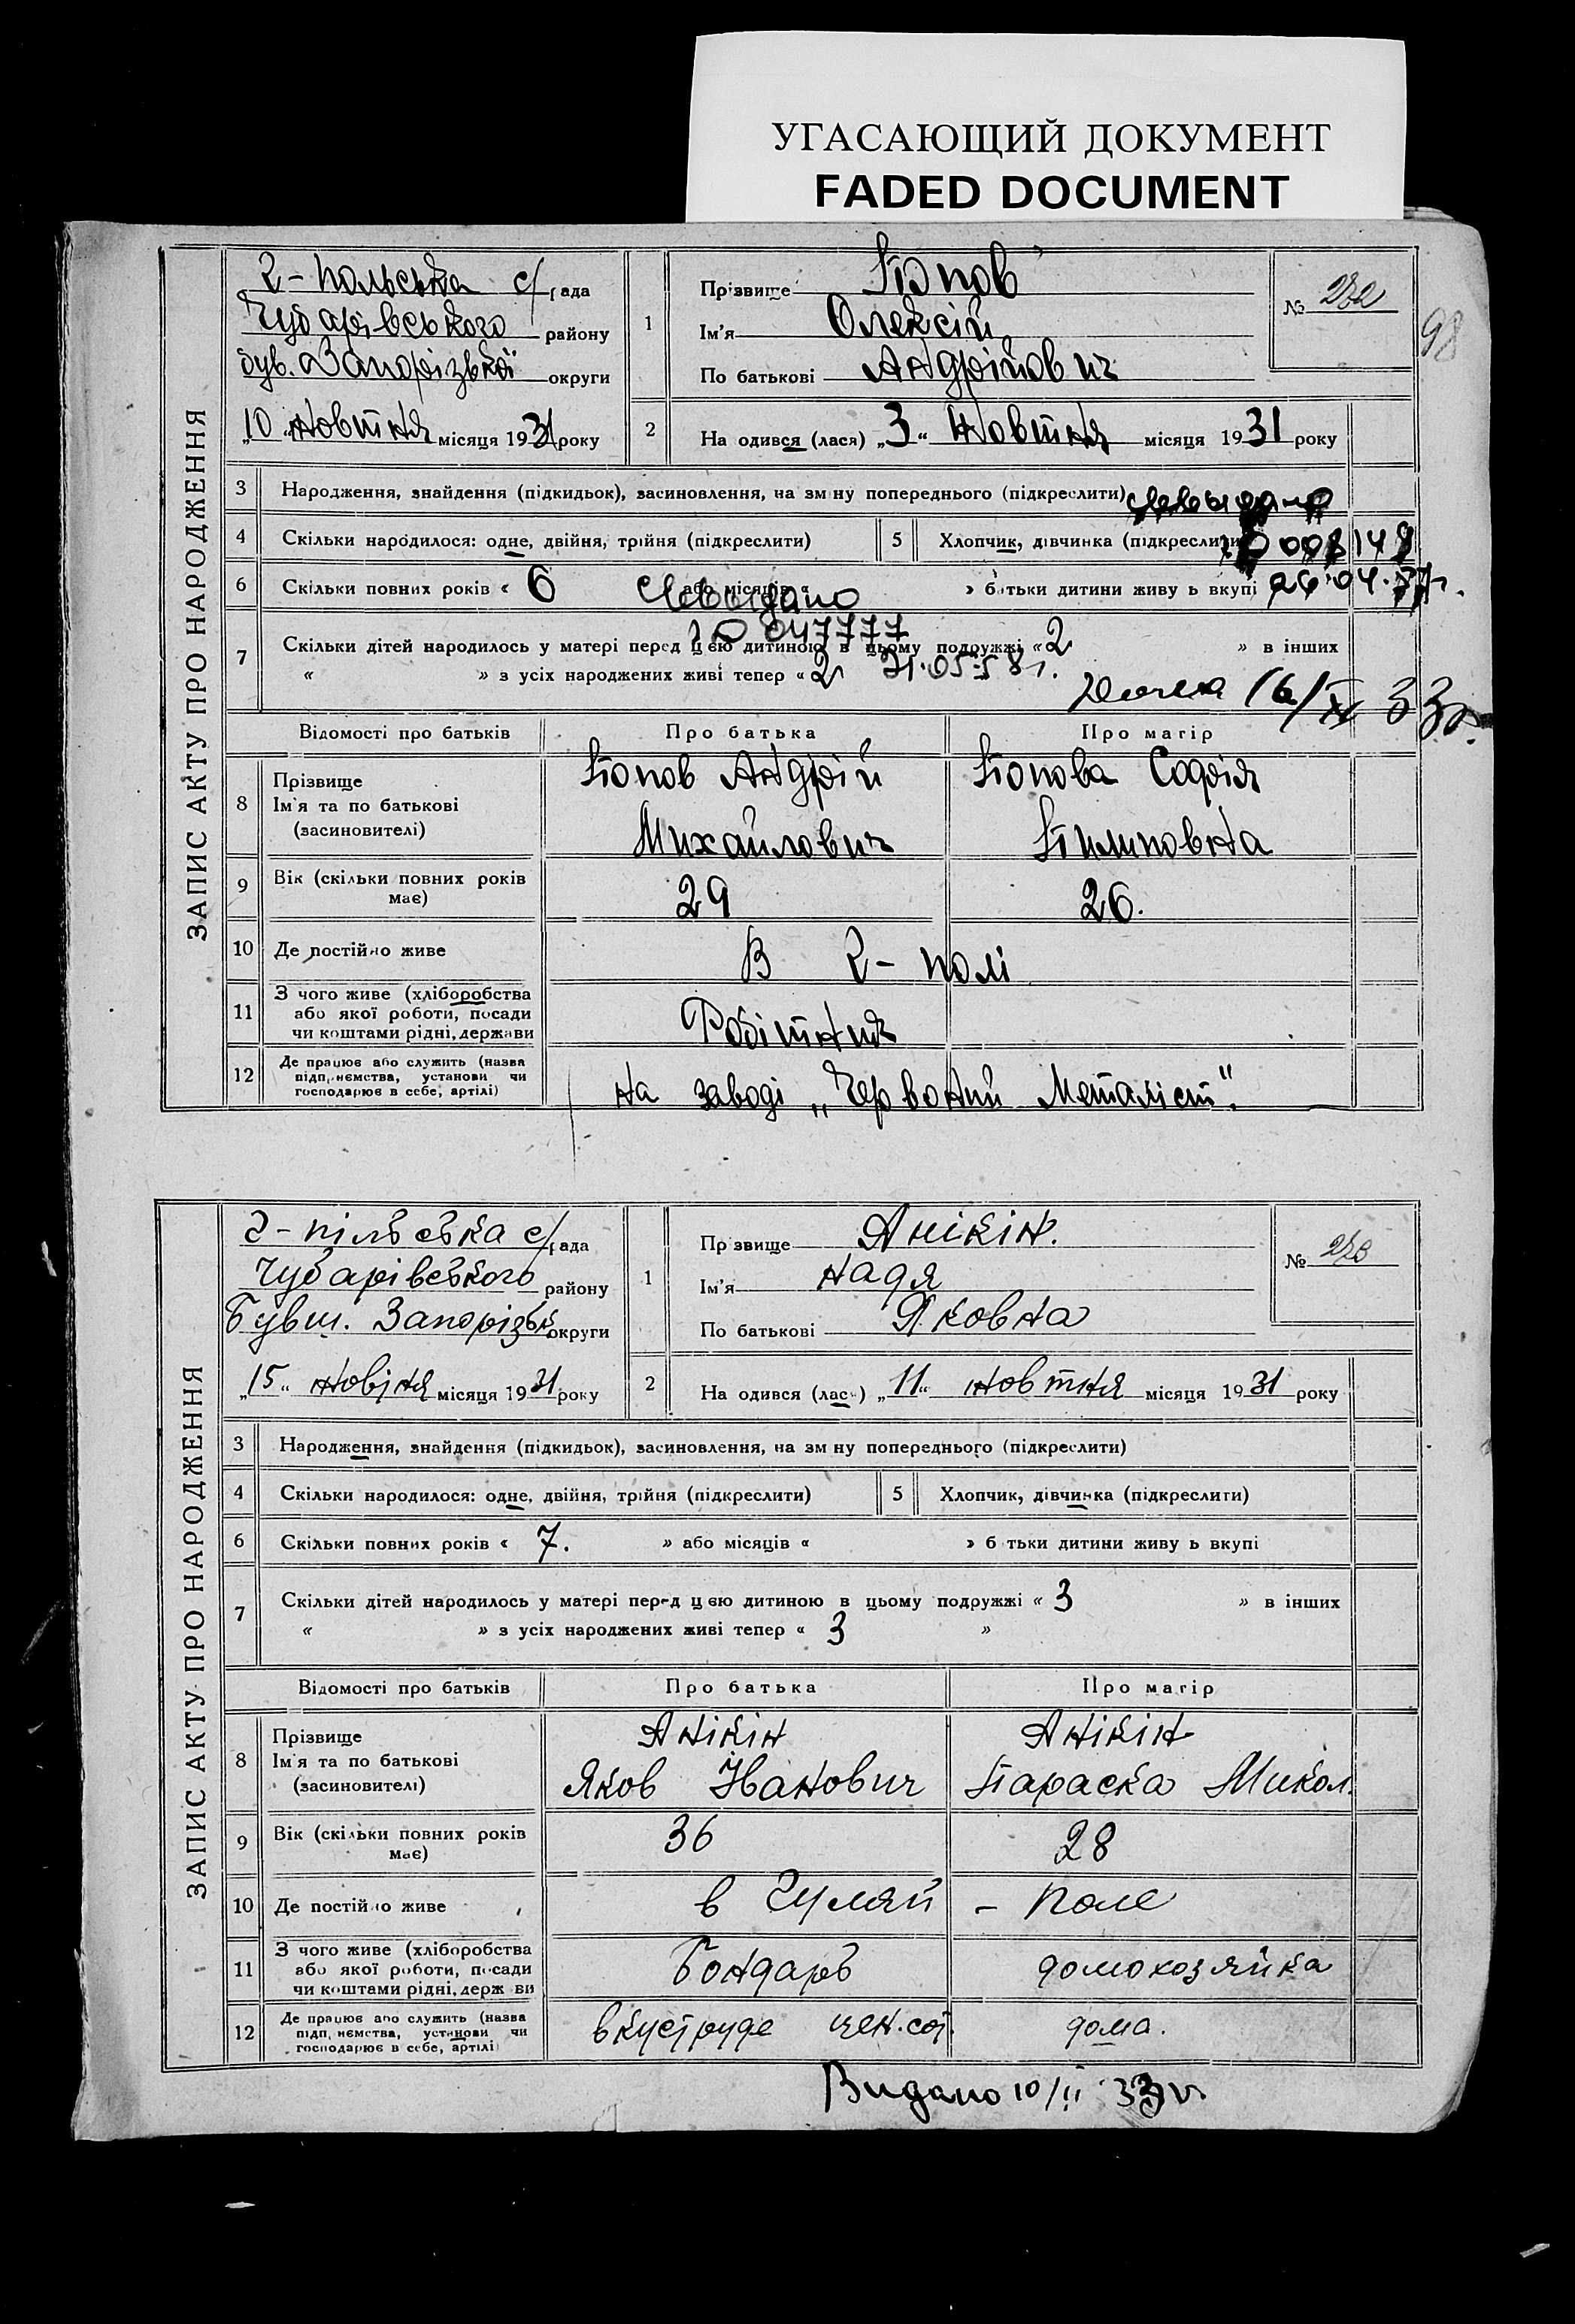 УГАСАЮЩИЙ ДОКУМЕНТ
FADED DOCUMENT
98
ЗАПИС АКТУ ПРО НАРОДЖЕННЯ
Г-польська с/рада
Чубарівського району
був. Запорізької округи
„10“ жовтня місяця 1931 року
1
Прізвище Попов
Ім'я Олексій
По батькові Андрійович
№ 232
2
На одився (лася) „3“ жовтня місяця 1931 року
3 Народження, знайдення (підкидьок), засиновлення, на зм ну попереднього (підкреслити)
4 Скільки народилося: одне, двійня, трійня (підкреслити)
5 Хлопчик, дівчинка (підкреслити)
6 Скільки повних років « 6 або місяців « » батьки дитини живу ь вкупі 26.04.77г.
7 Скільки дітей народилось у матері перед цією дитиною в цьому подружжі « 2 » в інших
« » з усіх народжених живі тепер « 2 21.05.58г.
Відомості про батьків
Про батька
Про матір
8 Прізвище
Ім'я та по батькові
(засиновителі)
Попов Андрій
Михайлович
Попова Софія
Пилиповна
9 Вік (скільки повних років
має)
29
26.
10 Де постійно живе
В Г-полі
11 З чого живе (хліборобства
або якої роботи, посади
чи коштами рідні, держави
Робітник
12 Де працює або служить (назва
підприємства, установи чи
господарює в себе, артілі)
на заводі „Червоний Металіст".
ЗАПИС АКТУ ПРО НАРОДЖЕННЯ
Г-пільська с/рада
Чубарівського району
Бувш. Запорізьк округи
„15“ жовтня місяця 1931 року
1
Пр звище Анікін.
Ім'я Надя
По батькові Яковна
№ 233
2
На одився (лася) „11“ жовтня місяця 1931 року
3 Народження, знайдення (підкидьок), засиновлення, на зм ну попереднього (підкреслити)
4 Скільки народилося: одне, двійня, трійня (підкреслити)
5 Хлопчик, дівчинка (підкреслити)
6 Скільки повних років « 7. » або місяців « » б тьки дитини живу ь вкупі
7 Скільки дітей народилось у матері перед цією дитиною в цьому подружжі « 3 » в інших
« » з усіх народжених живі тепер « 3 »
Відомості про батьків
Про батька
Про матір
8 Прізвище
Ім'я та по батькові
(засиновителі)
Анікін
Яков Іванович
Анікін
Параска Микол.
9 Вік (скільки повних років
має)
36
28
10 Де постійно живе
в Гуляй - Поле
11 З чого живе (хліборобства
або якої роботи, посади
чи коштами рідні, держ ви
Бондарь
домохозяйка
12 Де працює або служить (назва
підприємства, установи чи
господарює в себе, артілі)
дома.
Видано 10/II 33 г.